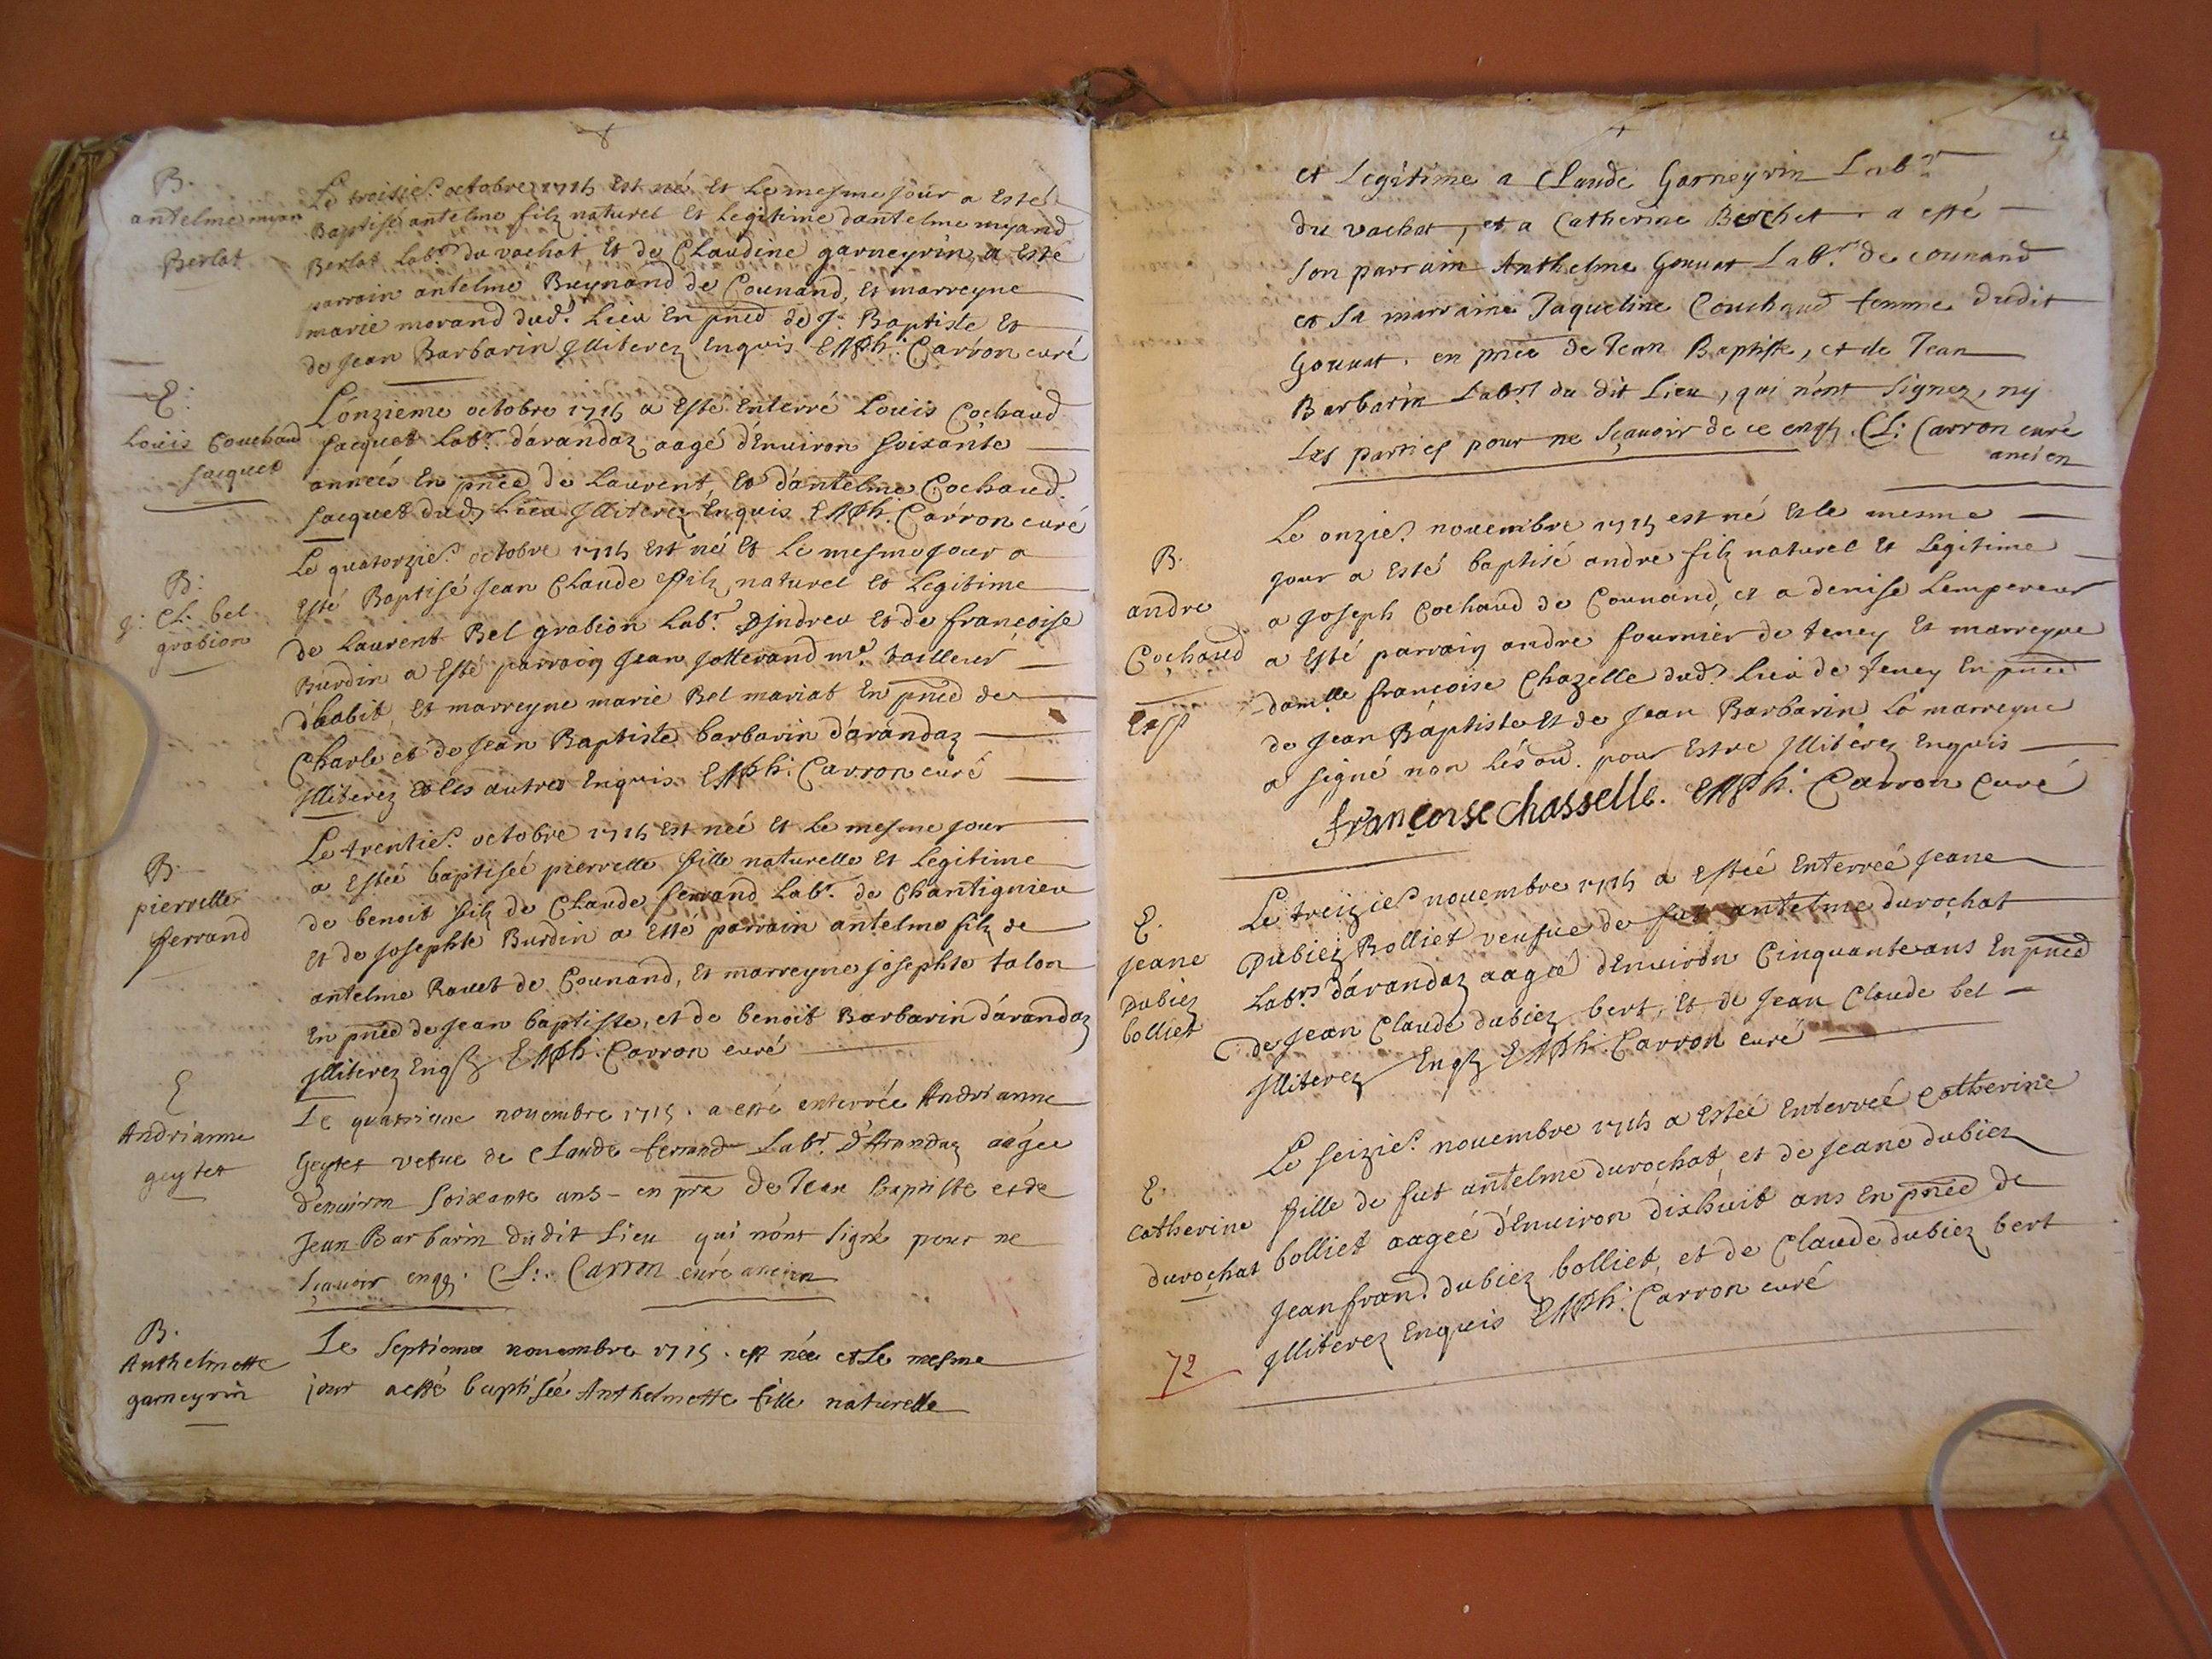 B.
antelme myan
Berlat
Le troisie. octobre 1715 Est né Et Le mesme jour a Esté
Baptisé antelme filz naturel Et Legitime dantelme myand
Berlat Labr. du vachat Et de CLaudine garneyrin, a Esté
parrain antelme Buynand de Counand, Et marreyne
marie morand dud. Lieu En pnce de J. Baptiste Et
de Jean Barbarin Jlliterez Enquis Carron curé
E.
Louis Couchaud
Jacquet
L'onzieme octobre 1715 a Esté Enterré Louis Cochaud
Jacquet Labr. d'arandaz aagé d'Enuiron soixante
années En pnce de Laurent, Et d'antelme Cochaud
Jacquet dud. Lieu Jlliterez Enquis Carron curé
B.
J: CL. bel
grabion
Le quatorzie. octobre 1715 Est né Et Le mesme jour a
Esté Baptisé Jean CLaude filz naturel Et Legitime
de Laurent Bel grabion Labr. D'Jndrev Et de francoise
Burdin a Esté parrain Jean Jotterand me. tailleur
d'habit, Et marreyne marie Bel mariat En pnce de
Charle et de Jean Baptiste barbarin d'arandaz
Jlliterez Et les autres Enquis Carron curé
B.
pierrette
ferrand
Le trentie. octobre 1715 Est née Et Le mesme jour
a Esté baptisée pierrette fille naturelle Et Legitime
de benoit filz de CLaude ferrand Labr. de Chantignieu
Et de Josephte Burdin a Esté parrain antelme filz de
antelme Rauet de Counand, Et marreyne Josephte talon
En pnce de Jean baptiste, et de benoit Barbarin d'arandaz
Jlliterez Carron curé
E
Andrianne
geytet
Le quatrieme nouembre 1715. a esté enterrée Andrianne
Geytet vefue de CLaude ferrand Labr. D'Arandaz aagée
d'enuiron soixante ans - en De Jean Baptiste et de
Jean Barbarin dudit Lieu qui n'ont signé pour ne
sçauoir CL: Carron curé ancien
B.
Anthelmette
garneyrin
Le septieme nouembre 1715. est née et Le mesme
jour a esté baptisée Anthelmette fille naturelle
et Legitime a CLaude Garneyrin Labr
du vachat, et a Catherine Berchet. a esté
son parrain Anthelme Gouuat Labr. de counand
et sa marraine Jaqueline Couchaud femme dudit
Gouuat. en pnce de Jean Baptiste, et de Jean
Barbarin Labrs du dit Lieu, qui n'ont signez, ny
Les parties pour ne sçauoir de ce CL: Carron curé
ancien
B.
andre
Cochaud
Le onzie. nouembre 1715 est né Et le mesme
jour a Esté baptisé andre filz naturel Et Legitime
a Joseph Cochaud de Counand, et a denise Lempereur
a Esté parrain andre fournier de teney Et marreyne
damlle francoise Chazelle dud. Lieu de teney En pnce
de Jean Baptiste Et de Jean Barbarin La marreyne
a signé non les pour Estre Jlliterez Enquis
Françoise Chasselle. Carron Curé
E.
Jeane
Dubiez
bolliet
Le treizie. nouembre 1715 a Esteé Enterreé Jeane
Dubiez Bolliet veufue de fut antelme durochat
Labr. d'arandaz aageé d'Enuiron Cinquante ans En pnce
de Jean Claude dubiez bert, Et de Jean Claude bel
Jlliterez Carron curé
E.
catherine
durochat
Le seizie. nouembre 1715 a Esteé Enterreé catherine
fille de fut antelme durochat, et de Jeane dubiez
bolliet aageé d'Enuiron dixhuit ans En pnce de
Jean fran. dubiez bolliet, et de Claude dubiez bert
Jlliterez Enquis Carron curé
72